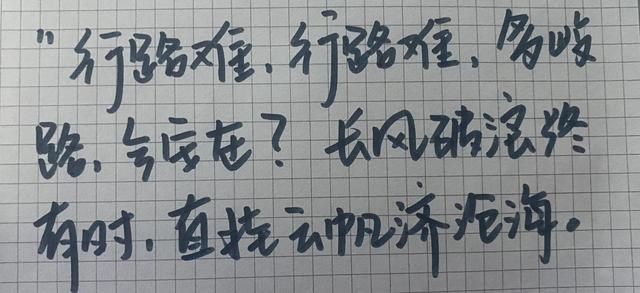 “行路难,行路难,多岐
路,今安在?长风破浪终
有时,直挂云帆济沧海。